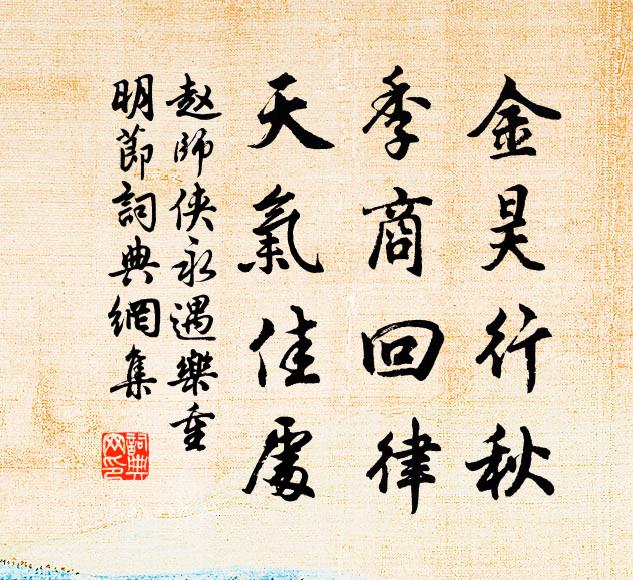 金昊行秋
季商回律
天氣佳處
趙師俠永遇樂重
明節詞典網集
詞典
网印